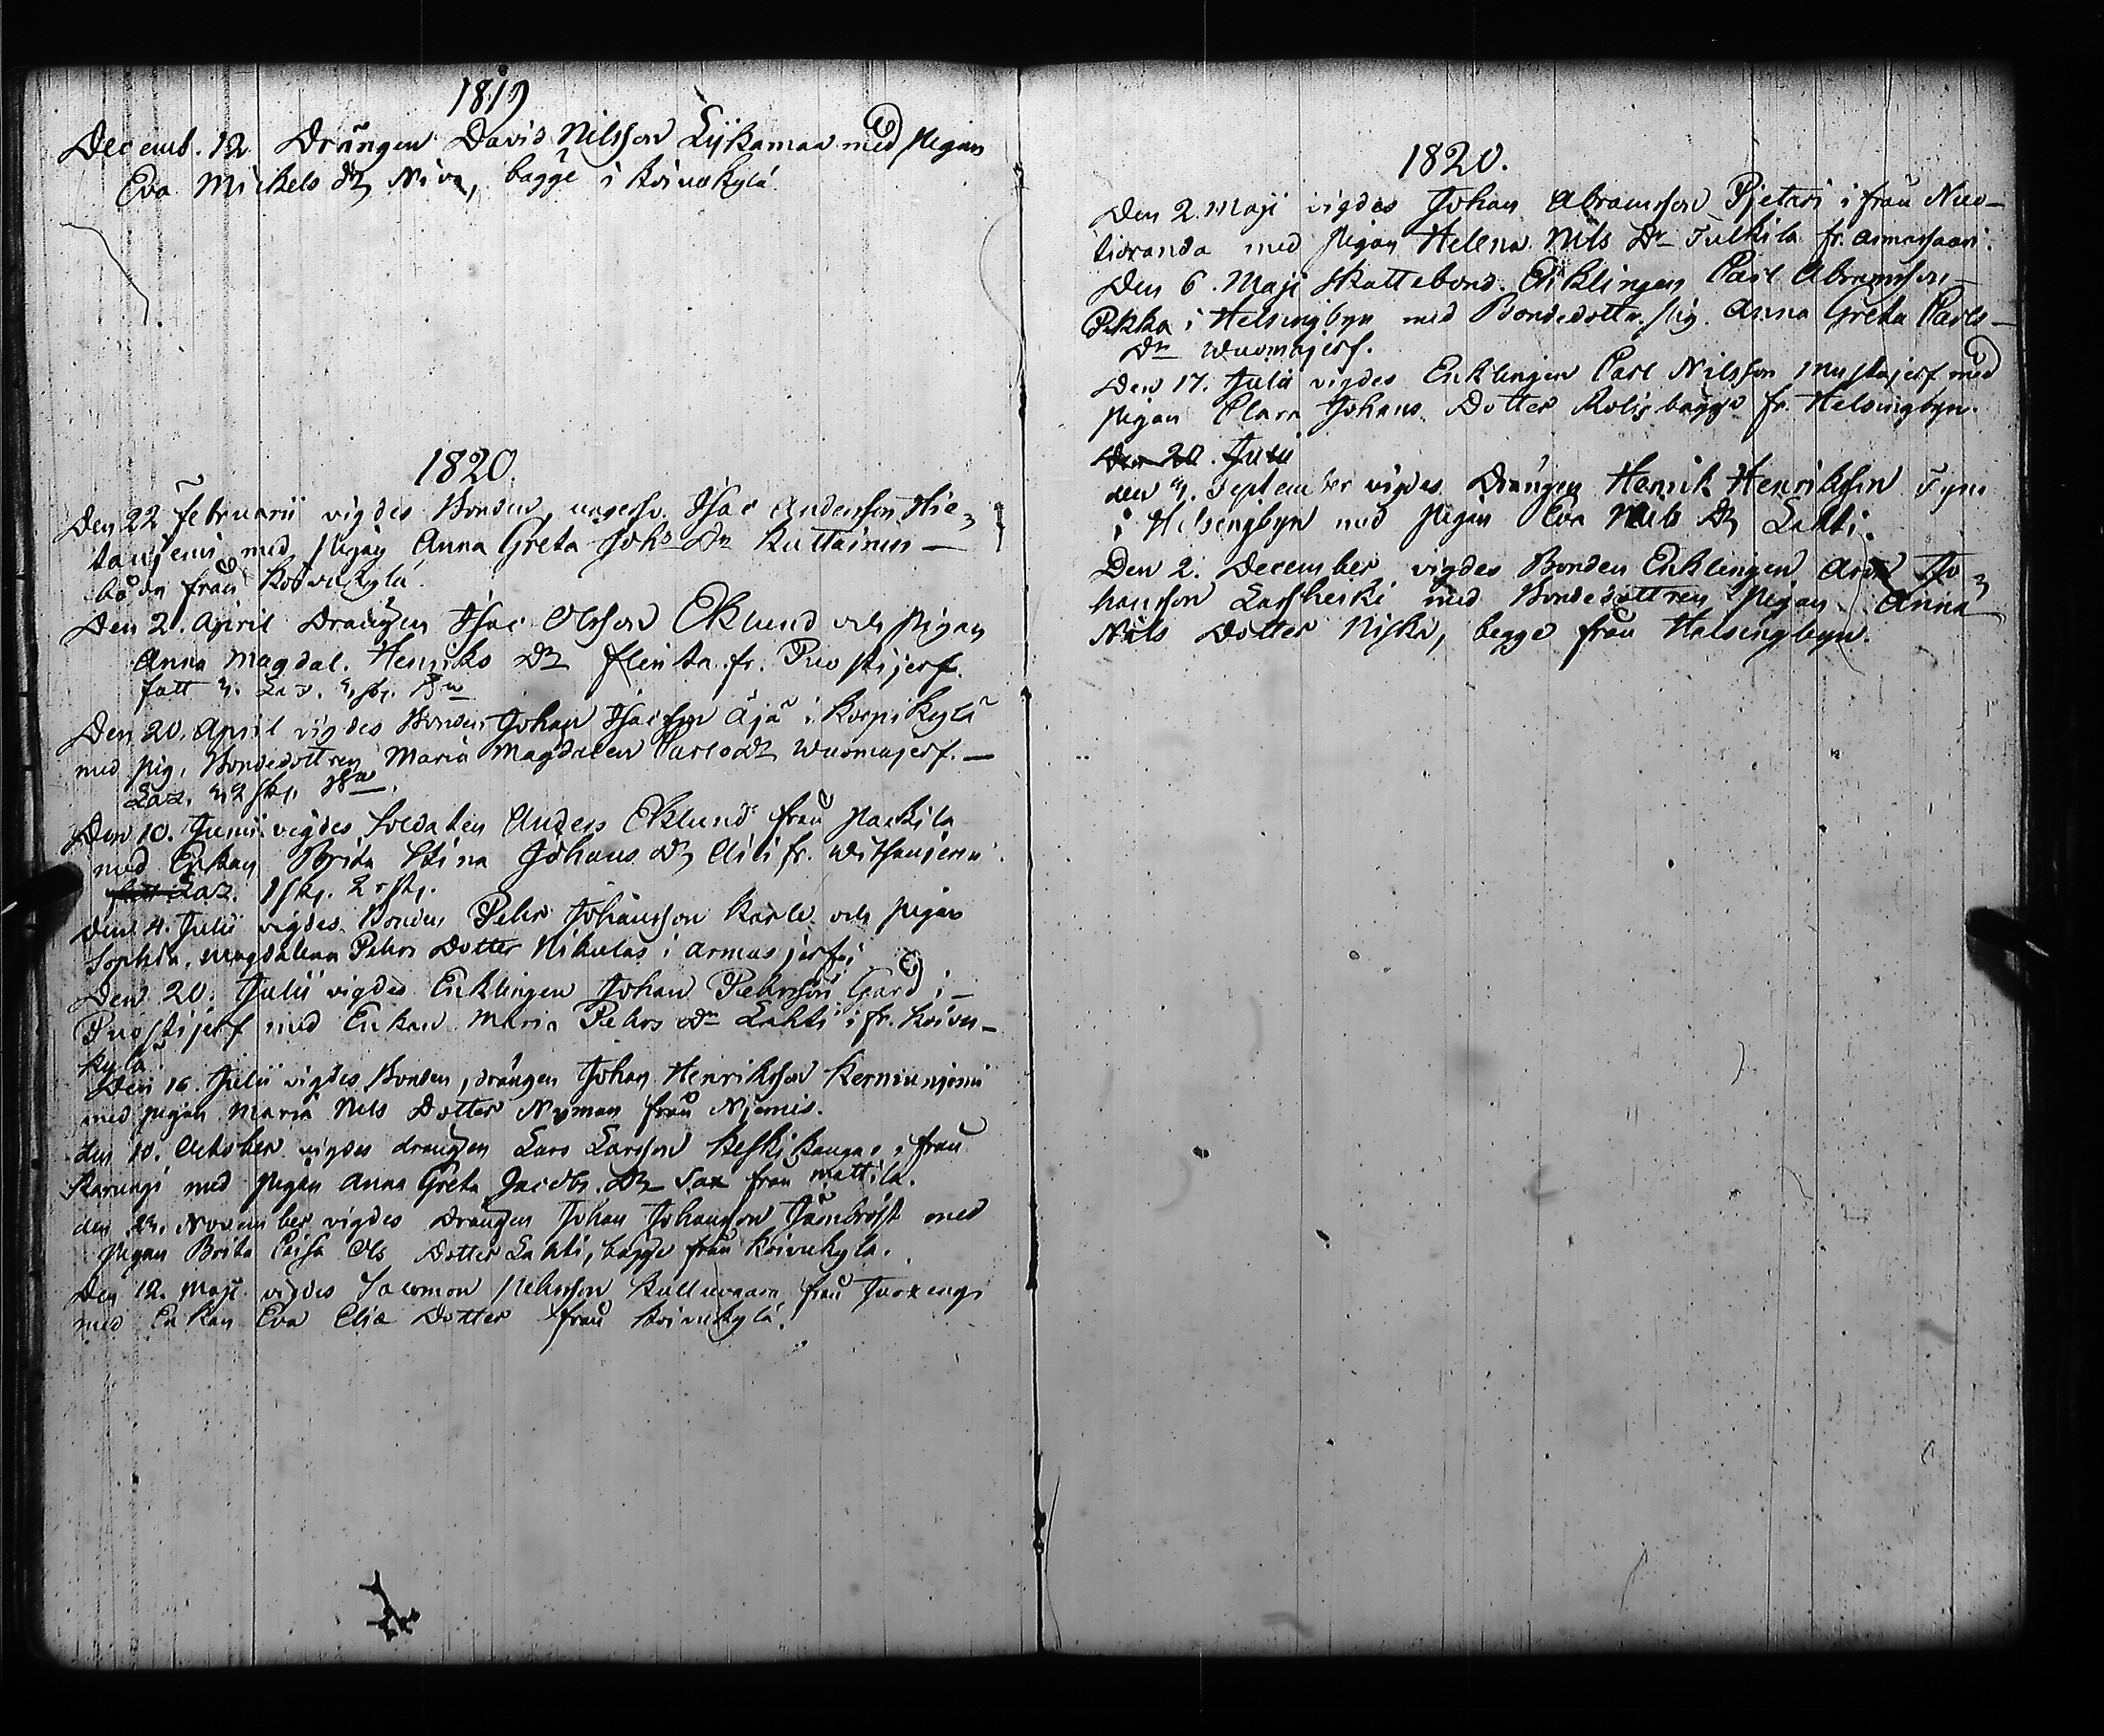 1819
Decemb. 12 Drängen David Nilsson Lyckamaa med Pigan
Eva Mickels dr Niva, bägge i Koivukylä
1820.
Den 22 Februarii vigdes Bonden, ungersv. Isac Andersson Hie-
taniemi med Pigan Anna Greta Johs Dr Kuttainen —
båda från Koivukylä.
Den 2. April Drängen Isac Olsson Eklund och Pigan
Anna Magdal. Henriks Dr Flinta fr. Puostijerf.
fatt Laz.
Den 20. April vigdes Bonden Johan Isacsson Äjä i Korpikylä
med pig. Bondedottren Maria Magdalen Carls Dr Wuomajerf. —
Laz.
Den 10. Junii vigdes Soldaten Anders Eklund från Päckilä
med Enkan Brita Stina Johans Dr Aili fr. Witsaniemi.
Laz. 1 skj. 2 rskj.
Den 4. Julii vigdes Bonden Pehr Johansson Karle och pigan
Sophia Magdalena Pehrs Dotter Nikulas i Armasjerfvi
Den 20. Julii vigdes Enklingen Johan Pehrsson Gard i —
Puostijerf med Enkan Maria Pehrs Dr Lahti i fr. Koivu-
kylä
Den 16. Julii vigdes Bonden, drängen Johan Henriksson Kerniniemi
med pigan Maria Nils Dotter Nyman från Niemis.
den 10. October vigdes drängen Lars Larsson Keskikangas i från
Karungi med pigan Anna Greta Jacobs Dr Sax från Mattila.
den November vigdes Drängen Johan Johansson Jämbröst med
Pigan Brita Caisa Ols Dotter Lahti, bägge från Koivukylä.
Den 12. Maji vigdes Salomon Pehrsson Kulluvaara från Juoxengi
med Enkan Eva Eliæ Dotter från Koivukylä.
1820.
Den 2. Maji vigdes Johan Abramsson Pietari i från Nuo-
tioranda med pigan Helena Nils Dr Tulkila fr. Armassaari.
Den 6. Maji Skattebond. Enklingen Carl Abramsson
Pekka i Helsingbyn med Bondedottr. Pig. Anna Greta Carls —
Dr Wuomajerf.
Den 17. Julii vigdes Enklingen Carl Nilsson Mustajerf med
pigan Clara Johans Dotter Kolis bägge fr. Helsingbyn.
Den 20. Julii
den 4. September vigdes Drängen Henrik Henriksson
i Helsingbyn med pigan Eva Nils Dr Lahti.
Den 2. December vigdes Bonden Enklingen Aron Jo-
hansson Lassheiki med Bondedottren pigan Anna
Nils Dotter Niska, begge från Helsingbyn.